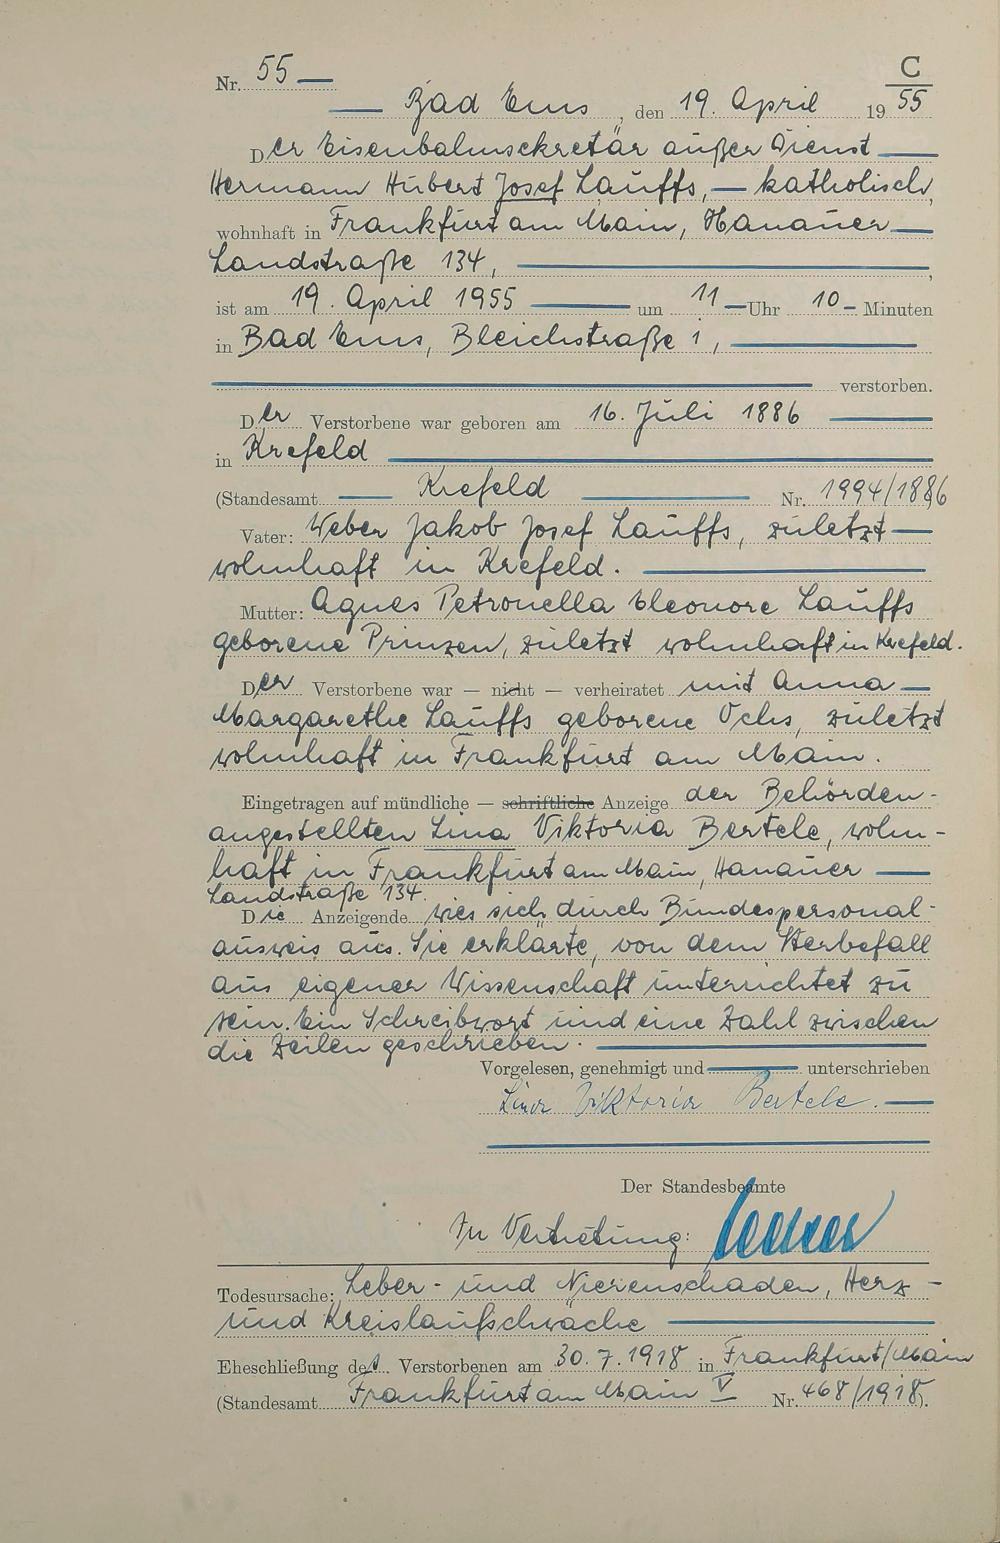 C
Nr. 55 —
— Bad Ems, den 19. April 1955
Der Eisenbahnsekretär außer Dienst —
Hermann Hubert Josef Lauffs, — katholisch,
wohnhaft in Frankfurt am Main, Hanauer —
Landstraße 134, —,
ist am 19. April 1955 — um 11 — Uhr 10 — Minuten
in Bad Ems, Bleichstraße 1, —
— verstorben.
Der Verstorbene war geboren am 16. Juli 1886 —
in Krefeld —
(Standesamt — Krefeld — Nr. 1994/1886
Vater: Weber Jakob Josef Lauffs, zuletzt —
wohnhaft in Krefeld. —
Mutter: Agnes Petronella Eleonore Lauffs
geborene Prinzen, zuletzt wohnhaft in Krefeld.
Der Verstorbene war — nicht — verheiratet mit Anna —
Margarethe Lauffs geborene Ochs, zuletzt
wohnhaft in Frankfurt am Main.
Eingetragen auf mündliche — schriftliche Anzeige der Behörden-
angestellten Lina Viktoria Bertele, wohn-
haft in Frankfurt am Main, Hanauer —
Landstraße 134.
Die Anzeigende wies sich durch Bundespersonal-
ausweis aus. Sie erklärte, von dem Sterbefall
aus eigener Wissenschaft unterrichtet zu
sein. Ein Schreibwort und eine Zahl zwischen
die Zeilen geschrieben. —
Vorgelesen, genehmigt und — unterschrieben
Lina Viktoria Bertele. —
Der Standesbeamte
In Vertretung:
Todesursache: Leber- und Nierenschaden, Herz-
und Kreislaufschwäche —
Eheschließung des Verstorbenen am 30.7.1918 in Frankfurt/Main
(Standesamt Frankfurt am Main V Nr. 468/1918).